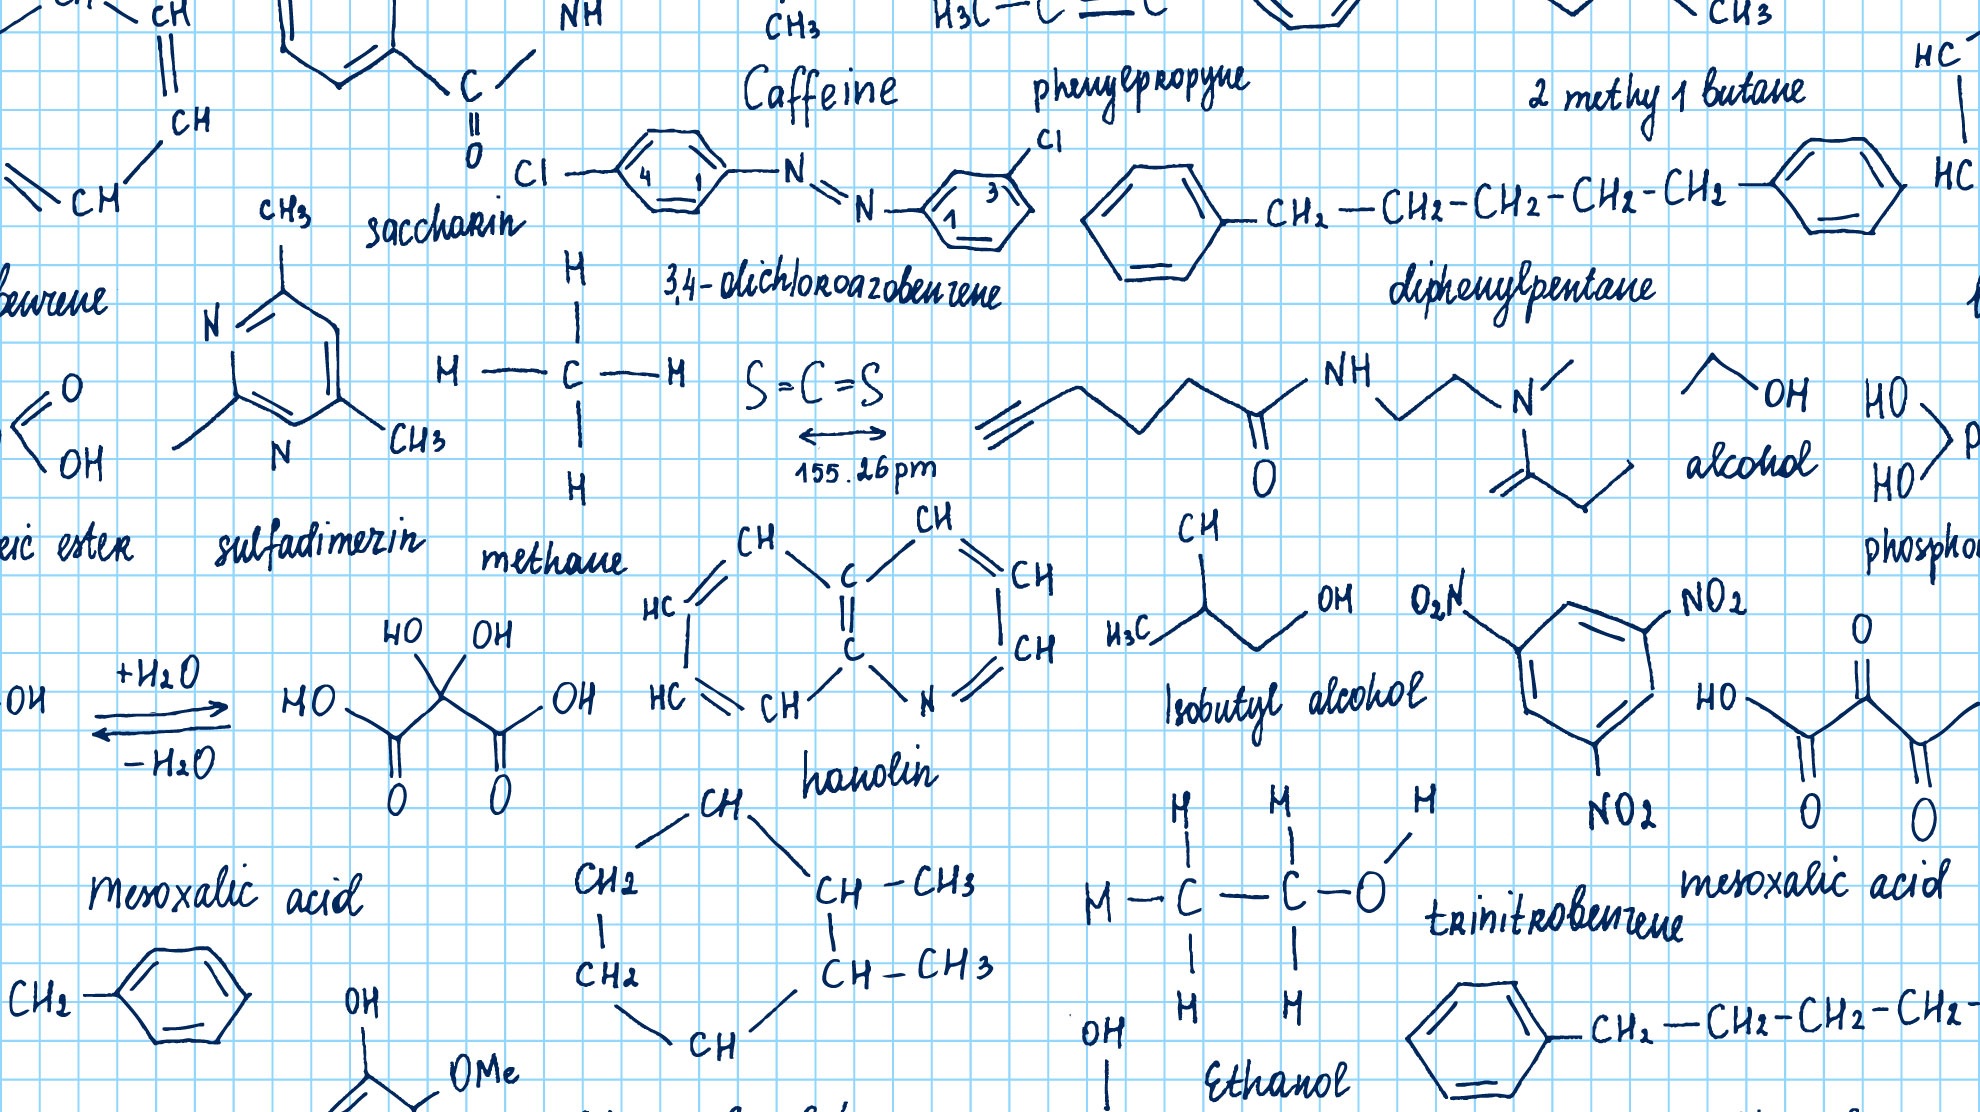 CH
NH
CH3
H3C — C ≡ C
CH3
HC
Caffeine
phenylpropyne
2 methy 1 butane
C
O
CH
CH
saccharin
Cl
4
1
N
N
1
3
Cl
3,4-dichloroazobenzene
CH2 — CH2 – CH2 – CH2 – CH2
diphenylpentane
HC
CH3
N
N
CH3
sulfadimerin
H
H — C — H
H
methane
S=C=S
155.26pm
NH
O
N
OH
alcohol
HO
HO
P
O
OH
ester
CH
CH
HC
C
CH
C
CH
HC
CH
N
hanolin
CH
H3C
OH
Isobutyl alcohol
O2N
NO2
NO2
trinitrobenzene
OH
+H2O
−H2O
HO
OH
HO
OH
O
O
Mesoxalic acid
O
HO
O
O
mesoxalic acid
CH
CH2
CH – CH3
CH2
CH – CH3
CH
H
H
H
H – C — C – O
H
H
Ethanol
CH2
OH
OMe
OH
CH2 — CH2 – CH2 – CH2 –